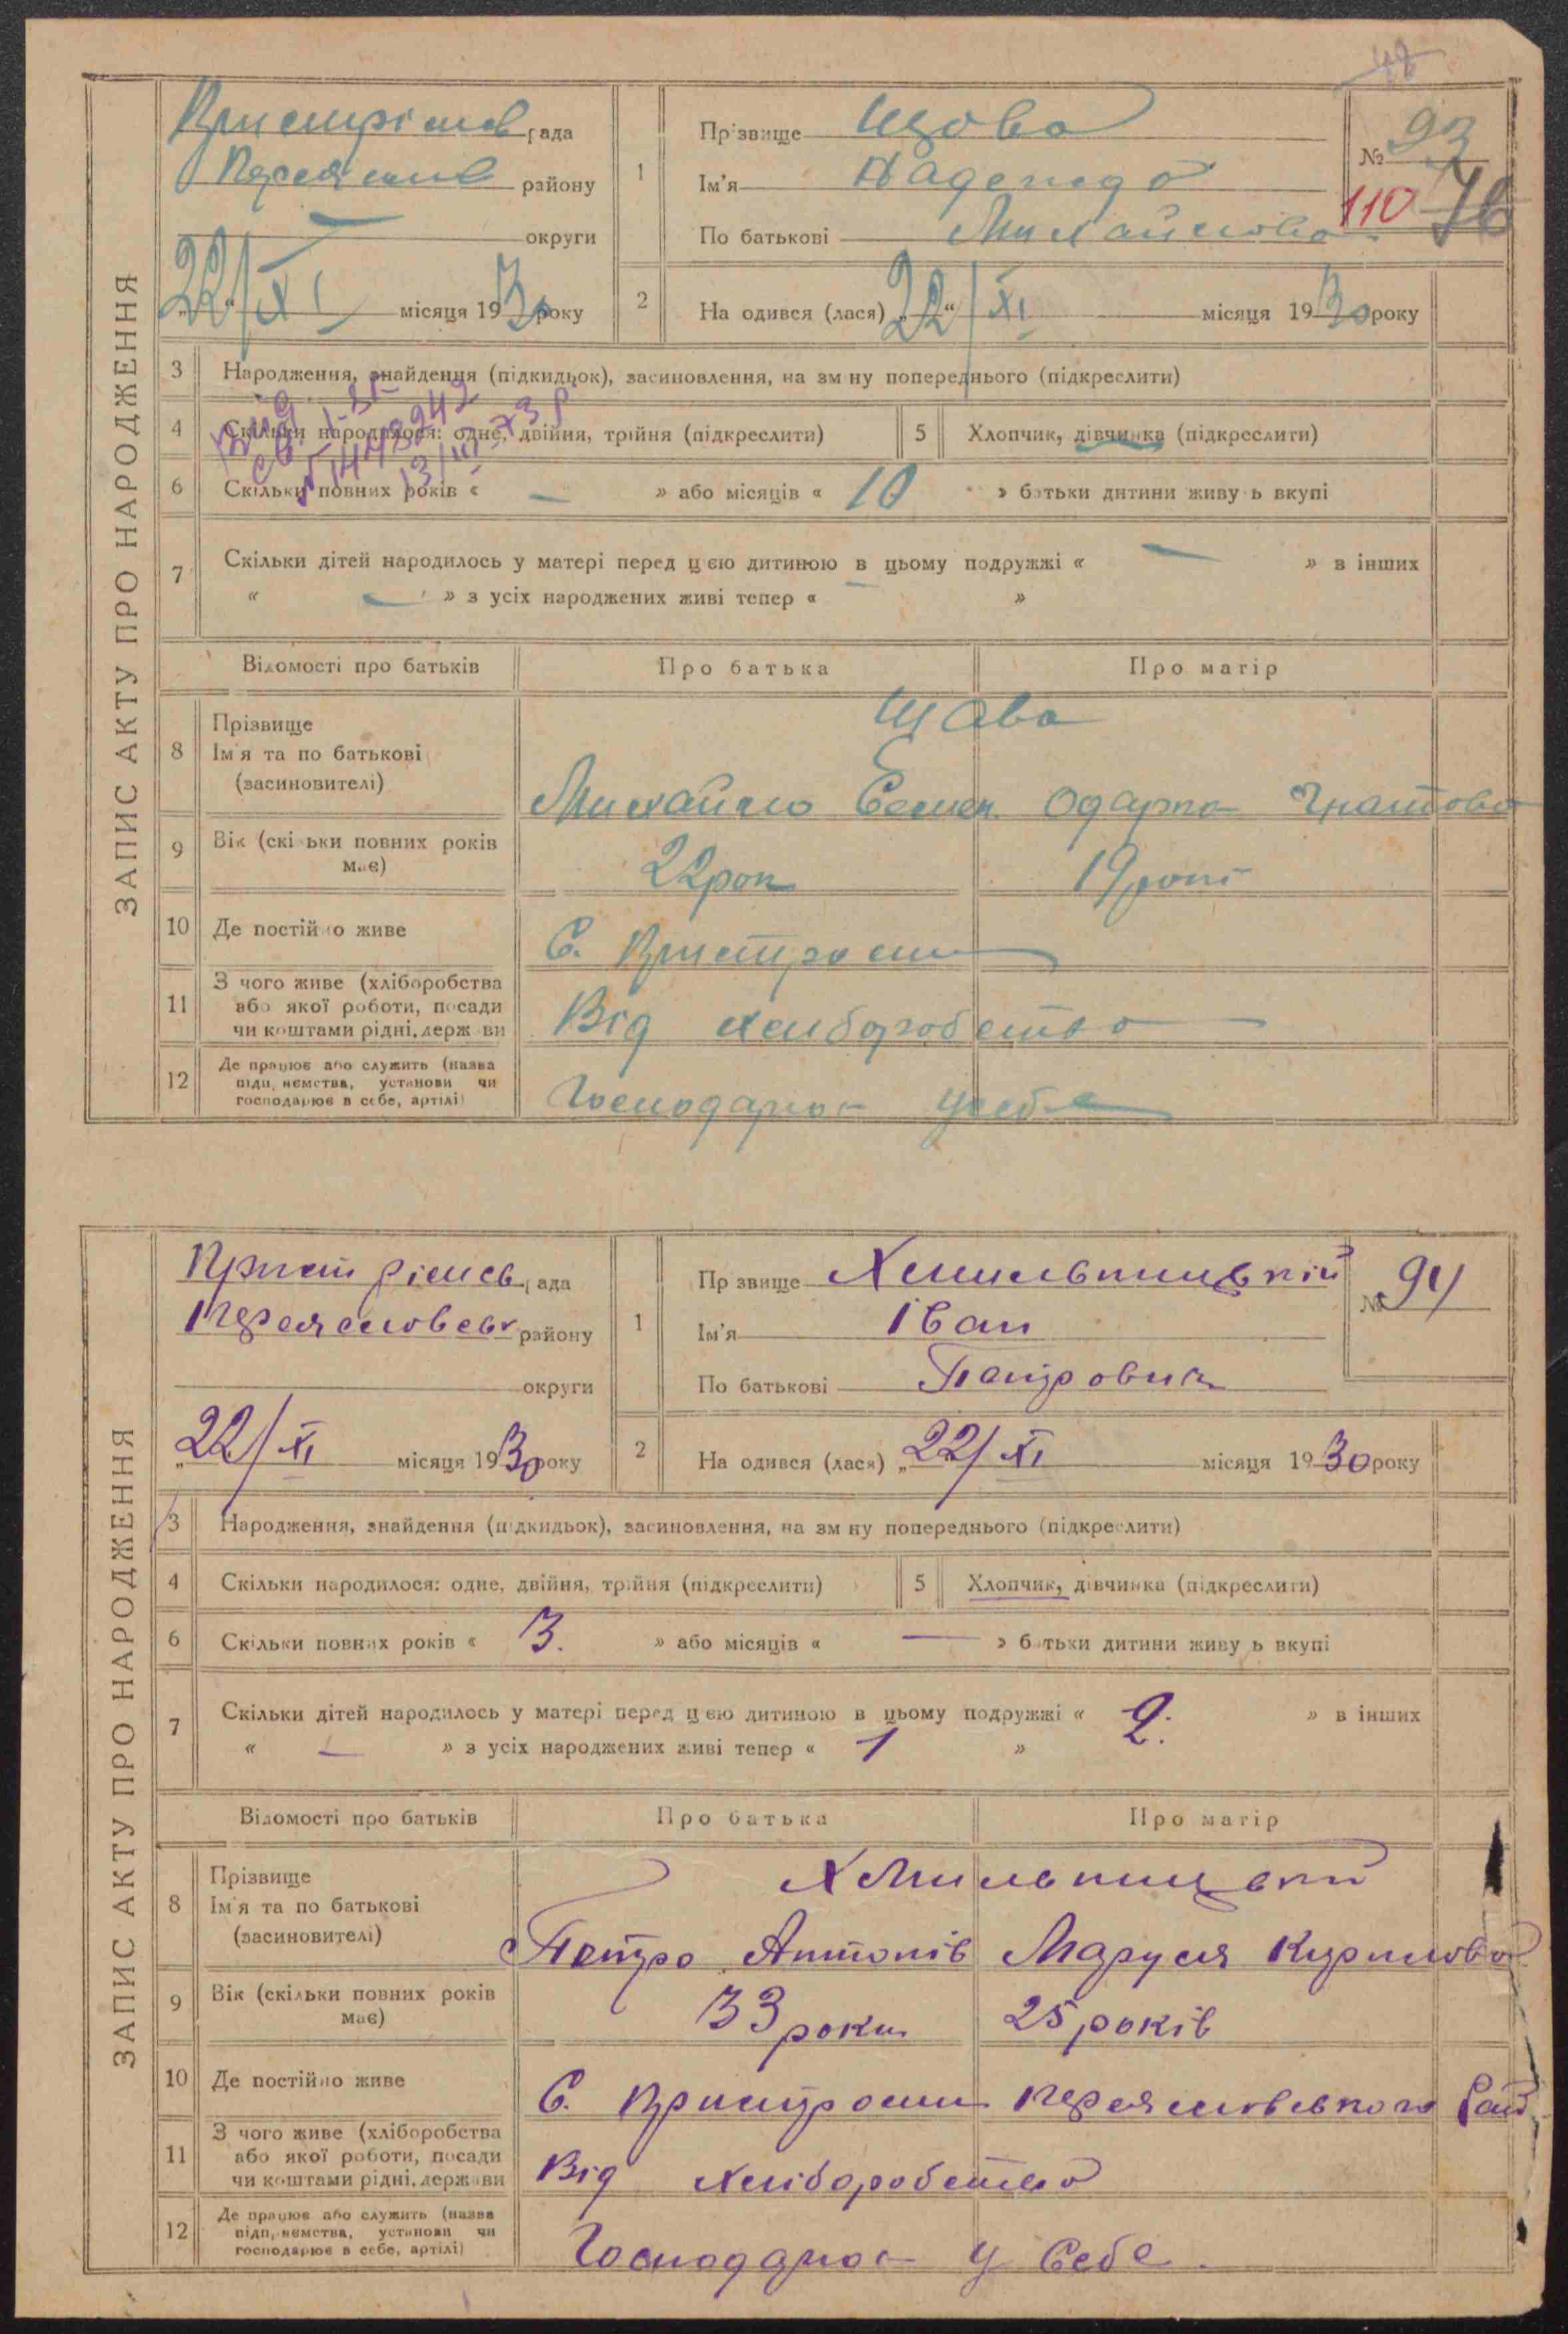 48
ЗАПИС АКТУ ПРО НАРОДЖЕННЯ
Пристрімсв рада
Переяслів району
— округи
22/XI місяця 1930 року
1 Прізвище Щова
Ім'я Надежда
По батькові Михайлова
№ 93
110 76
2 На одився (лася) „22“/XI місяця 1930 року
3 Народження, знайдення (підкидьок), засиновлення, на зм ну попереднього (підкреслити)
4 Скільки народилося: одне, двійня, трійня (підкреслити) 5 Хлопчик, дівчинка (підкреслити)
6 Скільки повних років « — » або місяців « 10 » батьки дитини живу ь вкупі
7 Скільки дітей народилось у матері перед цією дитиною в цьому подружжі « — » в інших
« — » з усіх народжених живі тепер « »
Відомості про батьків Про батька Про матір
8 Прізвище
Ім'я та по батькові
(засиновителі)
Щова
Михайло Семен. Одарка Гнатова
9 Вік (скі ьки повних років
має)
22 рок 19 рокі
10 Де постійно живе С. Пристроми
11 З чого живе (хліборобства
або якої роботи, посади
чи коштами рідні, держ ви
Від хлиборобства —
12 Де працює або служить (назва
підп, иємства, установи чи
господарює в себе, артілі)
Господарює у себе
ЗАПИС АКТУ ПРО НАРОДЖЕННЯ
Пристрімсв рада
Переясловськ району
округи
„22/XI місяця 1930 року
1 Пр звище Хмильницькій
Ім'я Іван
По батькові Петрович
№ 94
2 На одився (лася) „22/XI місяця 1930 року
3 Народження, знайдення (підкидьок), засиновлення, на зм ну попереднього (підкреслити)
4 Скільки народилося: одне, двійня, трійня (підкреслити) 5 Хлопчик, дівчинка (підкреслити)
6 Скільки повних років « 3. » або місяців « — » батьки дитини живу ь вкупі
7 Скільки дітей народилось у матері перед цією дитиною в цьому подружжі « 2. » в інших
« — » з усіх народжених живі тепер « 1 »
Відомості про батьків Про батька Про матір
8 Прізвище
Ім'я та по батькові
(засиновителі)
Хмильницькй
Петро Антонів Маруся Курилова
9 Вік (скільки повних років
має)
33 роки 25 років
10 Де постійно живе С. Пристроми Переясловського Рай
11 З чого живе (хліборобства
або якої роботи, посади
чи коштами рідні, держави
Від хліборобства
12 Де працює або служить (назва
підп, иємства, установи чи
господарює в себе, артілі)
Господарює у Себе.